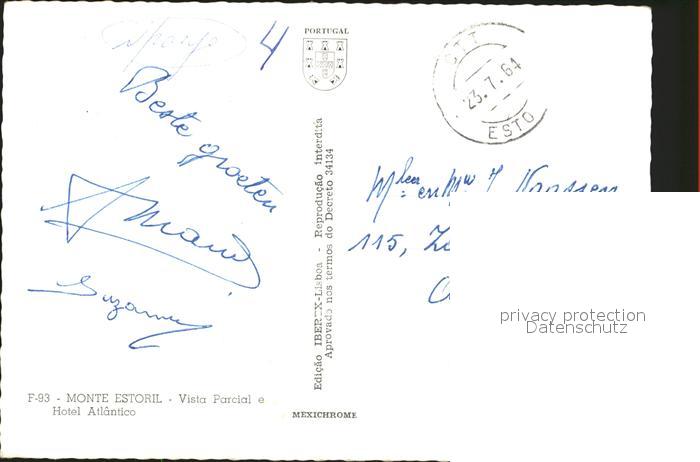 4
PORTUGAL
CTT
23.7.64
ESTO
Beste groeten
Suzanne
Mheer en Mw J
115,
Edição IBEREX-Lisboa - Reprodução interdita
Aprovado nos termos do Decreto 34134
privacy protection
Datenschutz
F-93 - MONTE ESTORIL - Vista Parcial e
Hotel Atlântico
MEXICHROME